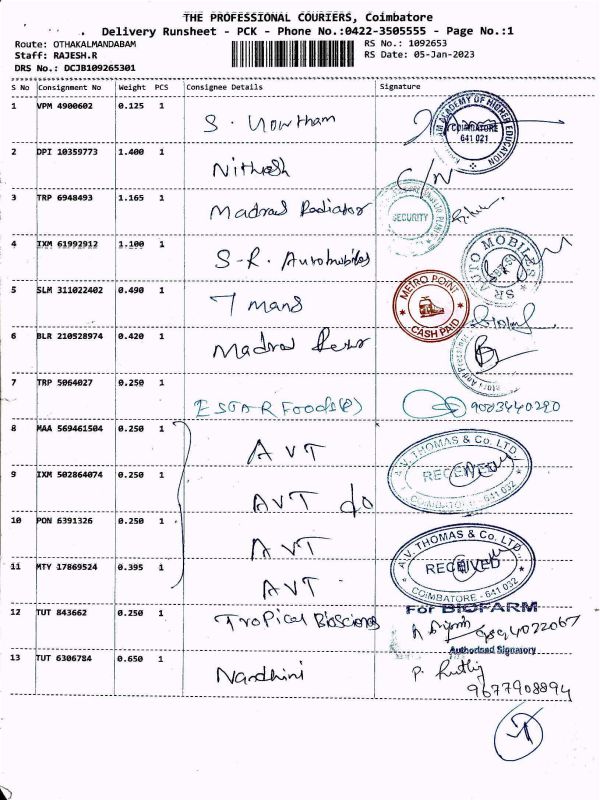 THE PROFESSIONAL COURIERS, Coimbatore
Delivery Runsheet - PCK - Phone No.:0422-3505555 - Page No.:1
Route: OTHAKALMANDABAM
Staff: RAJESH.R
DRS No.: DCJB109265301
RS No.: 1092653
RS Date: 05-Jan-2023
S No Consignment No Weight PCS Consignee Details Signature
1 VPM 4900602 0.125 1 S. Gowtham
ACADEMY OF HIGHER EDUCATION
COIMBATORE
641 021
2 DPI 10359773 1.400 1 Nithesh
3 TRP 6948493 1.165 1 Madras Radiator
SECURITY
4 IXM 61992912 1.100 1 S.R. Automobiles
SR AUTO MOBILES
5 SLM 311022402 0.490 1 7 Mans
METRO POINT
CASH PAID
6 BLR 210528974 0.420 1 Madras
7 TRP 5064027 0.250 1 ESTAR Foods(P) 9003440290
8 MAA 569461504 0.250 1 AVT
A.V. THOMAS & Co. LTD.
RECEIVED
COIMBATORE - 641 032
9 IXM 502864074 0.250 1 AVT
10 PON 6391326 0.250 1 AVT
A.V. THOMAS & Co. LTD.,
RECEIVED
COIMBATORE - 641 032
11 MTY 17869524 0.395 1 AVT
12 TUT 843662 0.250 1 Tropical Biosciences
For BIOFARM
Authorised Signatory
13 TUT 6306784 0.650 1 Nandhini
9677908894